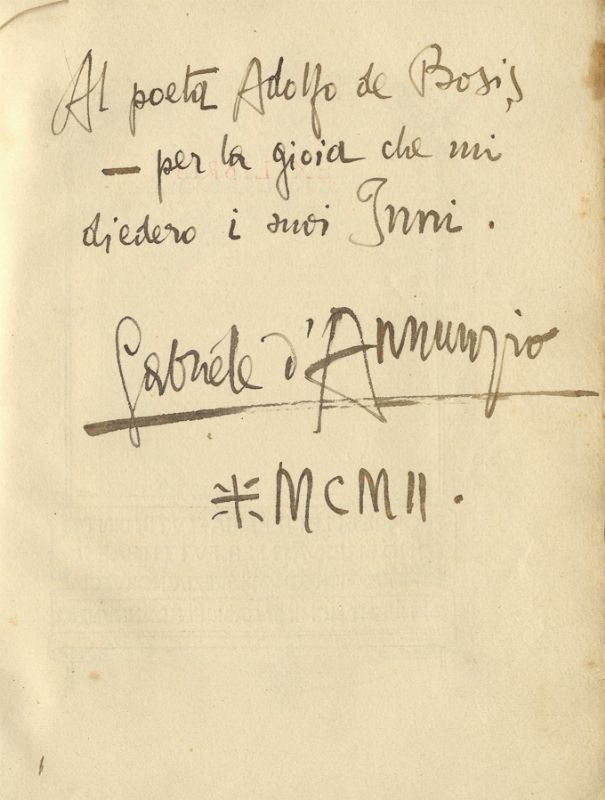 Al poeta Adolfo de Bosis,
— per la gioia che mi
diedero i suoi Inni.
Gabriele d'Annunzio
MCMII.